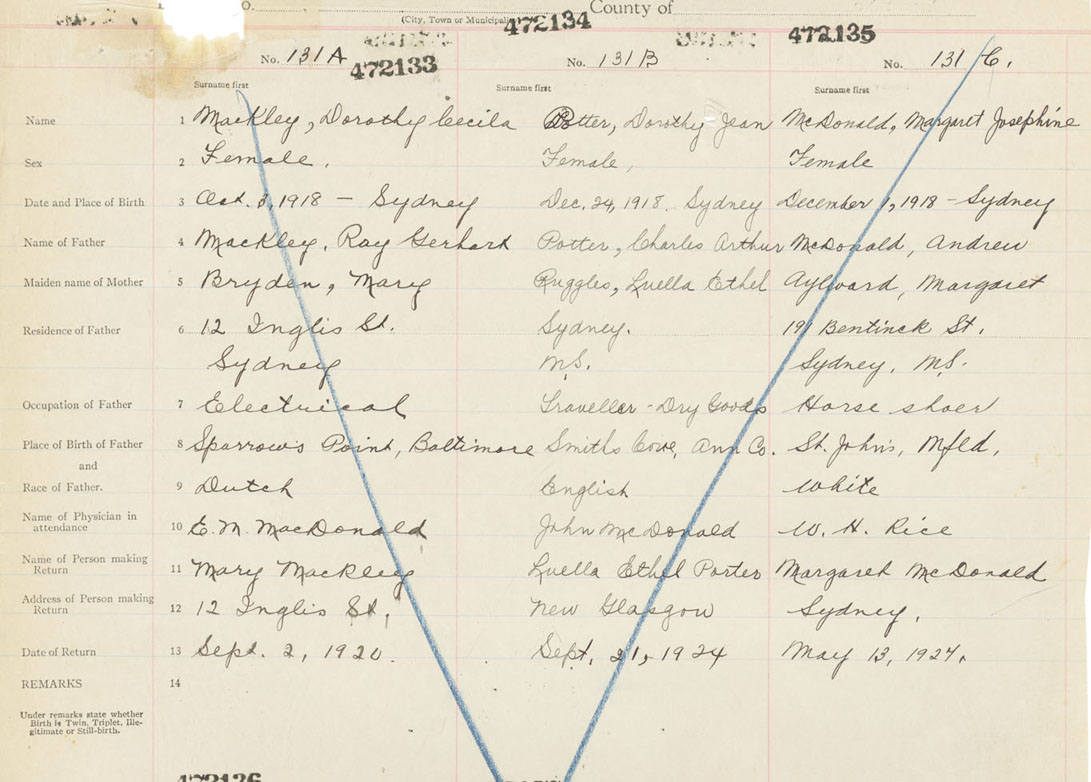 O. County of
(City, Town or Municipali
472134
472135
472133
No. 131 A No. 131 B No. 131 C.
Surname first Surname first Surname first
Name 1 Mackley, Dorothy Cecila Potter, Dorothy Jean McDonald, Margaret Josephine
Sex 2 Female. Female, Female
Date and Place of Birth 3 Oct. 3, 1918 - Sydney Dec. 24, 1918. Sydney December 1, 1918 - Sydney
Name of Father 4 Mackley, Ray Gerhart Potter, Charles Arthur McDonald, Andrew
Maiden name of Mother 5 Bryden, Mary Ruggles, Luella Ethel Aylward, Margaret
Residence of Father 6 12 Inglis St. Sydney. 191 Bentinck St.
Sydney N.S. Sydney, N.S.
Occupation of Father 7 Electrical Traveller - Dry Goods Horse shoer
Place of Birth of Father 8 Sparrow's Point, Baltimore Smiths Cove, Ann Co. St. John's, Nfld.
and
Race of Father. 9 Dutch English White
Name of Physician in
attendance 10 E. M. MacDonald John McDonald W. H. Rice
Name of Person making
Return 11 Mary Mackley Luella Ethel Porter Margaret McDonald
Address of Person making
Return 12 12 Inglis St. New Glasgow Sydney.
Date of Return 13 Sept. 2, 1920. Sept. 21, 1924 May 13, 1927.
REMARKS 14
Under remarks state whether
Birth is Twin, Triplet, Ille-
gitimate or Still-birth.
472136